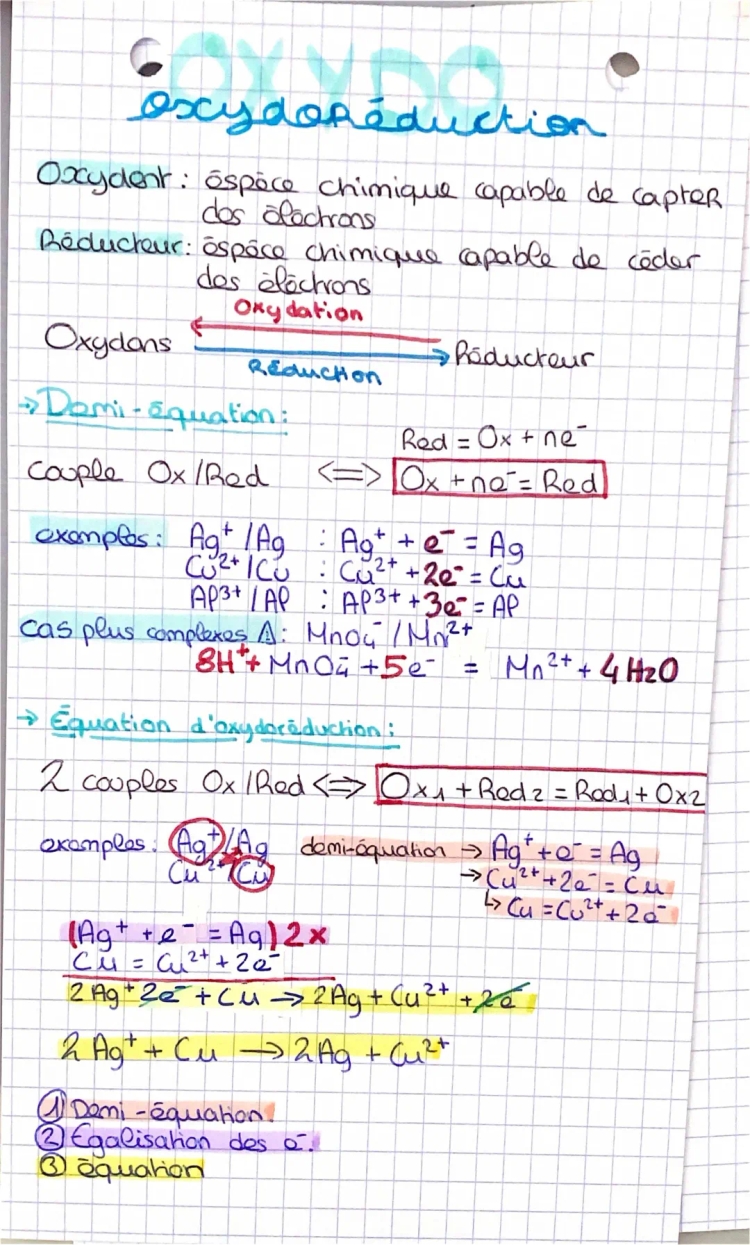 OXYDO
oxydoréduction
Oxydant : espèce chimique capable de capter
des électrons
Réducteur : espèce chimique capable de céder
des électrons
Oxydation
Oxydans ⇄ Réducteur
Réduction
→ Demi-équation :
Red = Ox + ne⁻
couple Ox/Red <=> Ox + ne⁻ = Red
examples : Ag⁺/Ag : Ag⁺ + e⁻ = Ag
Cu²⁺/Cu : Cu²⁺ + 2e⁻ = Cu
Al³⁺/Al : Al³⁺ + 3e⁻ = Al
cas plus complexes ⚠ : MnO₄⁻/Mn²⁺
8H⁺ + MnO₄⁻ + 5e⁻ = Mn²⁺ + 4H₂O
→ Équation d'oxydoréduction :
2 couples Ox/Red <=> Ox1 + Red2 = Red1 + Ox2
examples : Ag⁺/Ag demi-équation → Ag⁺ + e⁻ = Ag
Cu²⁺/Cu → Cu²⁺ + 2e⁻ = Cu
↳ Cu = Cu²⁺ + 2e⁻
(Ag⁺ + e⁻ = Ag) 2x
Cu = Cu²⁺ + 2e⁻
2Ag⁺ 2e⁻ + Cu → 2Ag + Cu²⁺ + 2e⁻
2Ag⁺ + Cu → 2Ag + Cu²⁺
① Demi-équation.
② Egalisation des e⁻.
③ équation